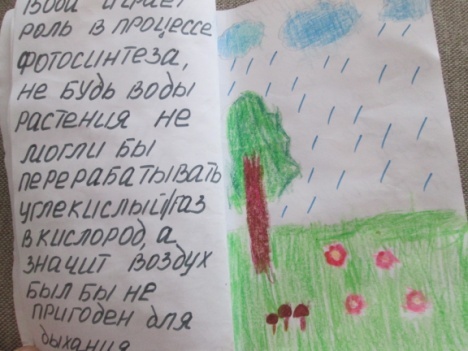 вода играет
роль в процессе
фотосинтеза,
не будь воды
растения не
могли бы
перерабатывать
углекислый газ
в кислород, а
значит воздух
был бы не
пригоден для
дыхания